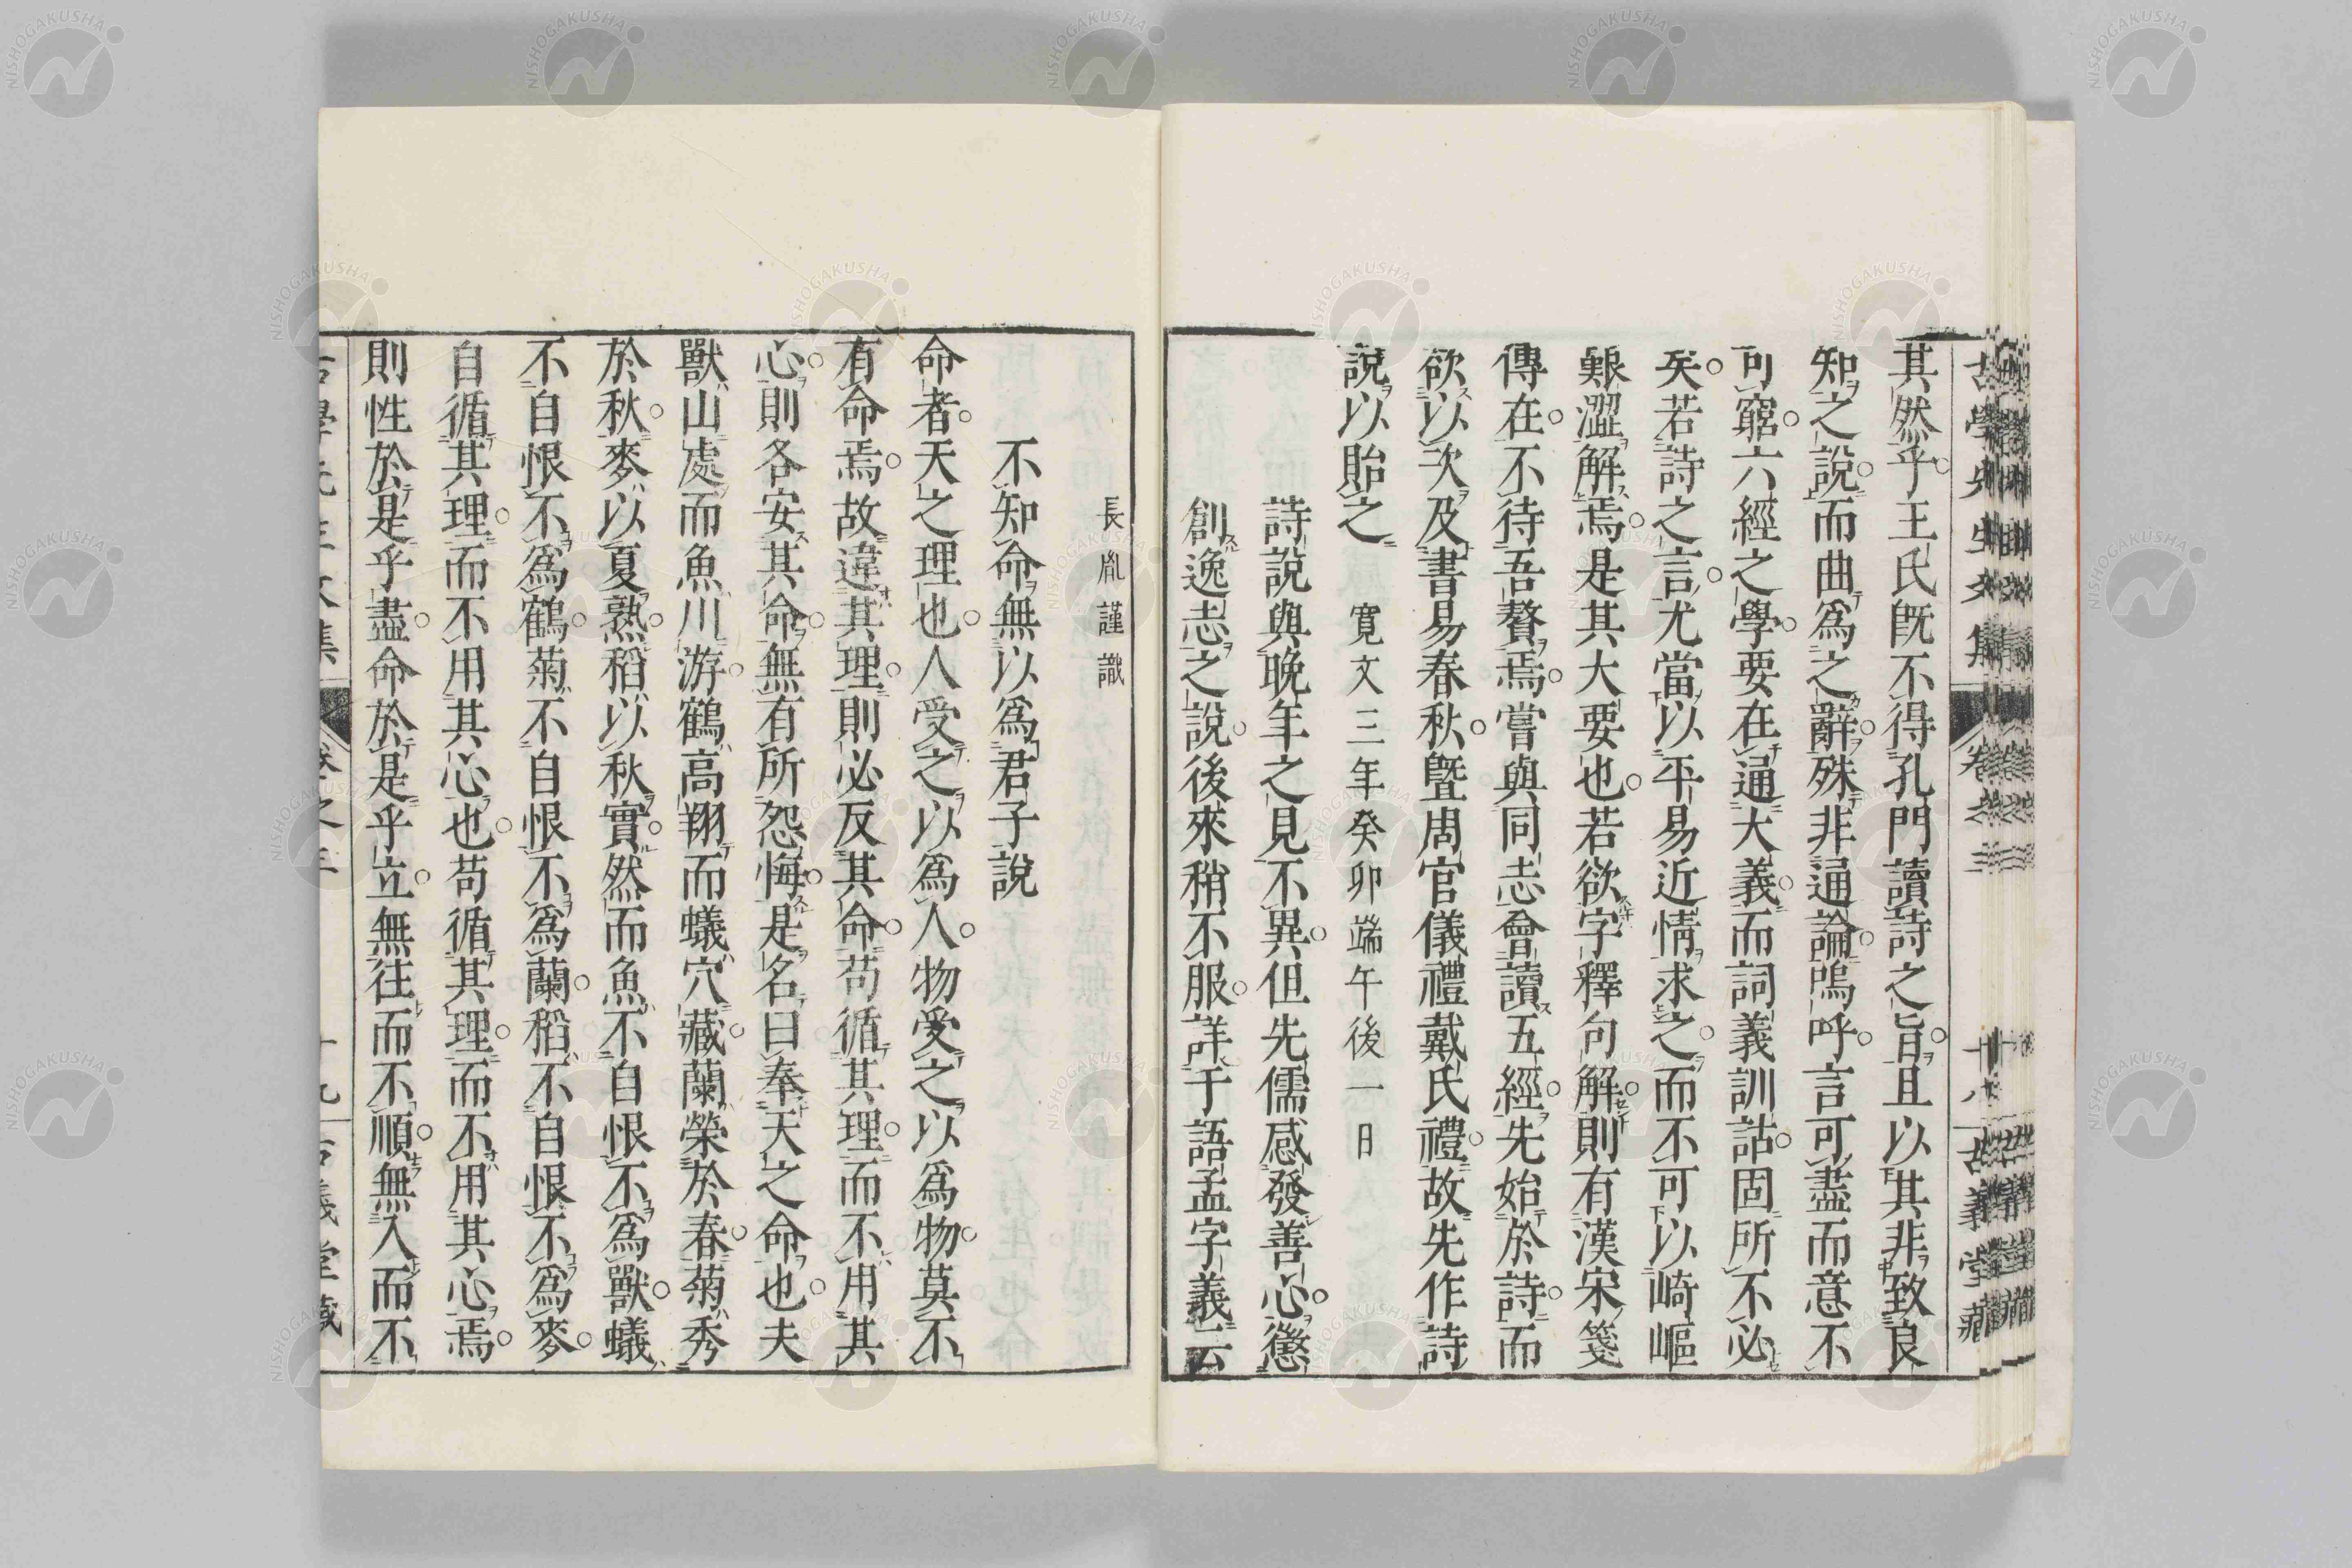 古學先生文集 卷之三 十八 古義堂藏
其然乎王氏既不得孔門讀詩之旨且以其非致良
知之說而曲爲之辭殊非通論嗚呼言可盡而意不
可窮六經之學要在通大義而詞義訓詁固所不必
矣若詩之言尤當以平易近情求之而不可以崎嶇
艱澀解焉是其大要也若欲字釋句解則有漢宋箋
傳在不待吾贅焉嘗與同志會讀五經先始於詩而
欲以次及書易春秋曁周官儀禮戴氏禮故先作詩
說以貽之 寬文三年癸卯端午後一日
詩說與晚年之見不異但先儒感發善心懲
創逸志之說後來稍不服詳于語孟字義云
長胤謹識
不知命無以爲君子說
命者天之理也人受之以爲人物受之以爲物莫不
有命焉故違其理則必反其命苟循其理而不用其
心則各安其命無有所怨悔是名曰奉天之命也夫
獸山處而魚川游鶴高翔而蟻穴藏蘭榮於春菊秀
於秋麥以夏熟稻以秋實然而魚不自恨不爲獸蟻
不自恨不爲鶴菊不自恨不爲蘭稻不自恨不爲麥
自循其理而不用其心也苟循其理而不用其心焉
則性於是乎盡命於是乎立無往而不順無入而不
古學先生文集 卷之三 十九 古義堂藏